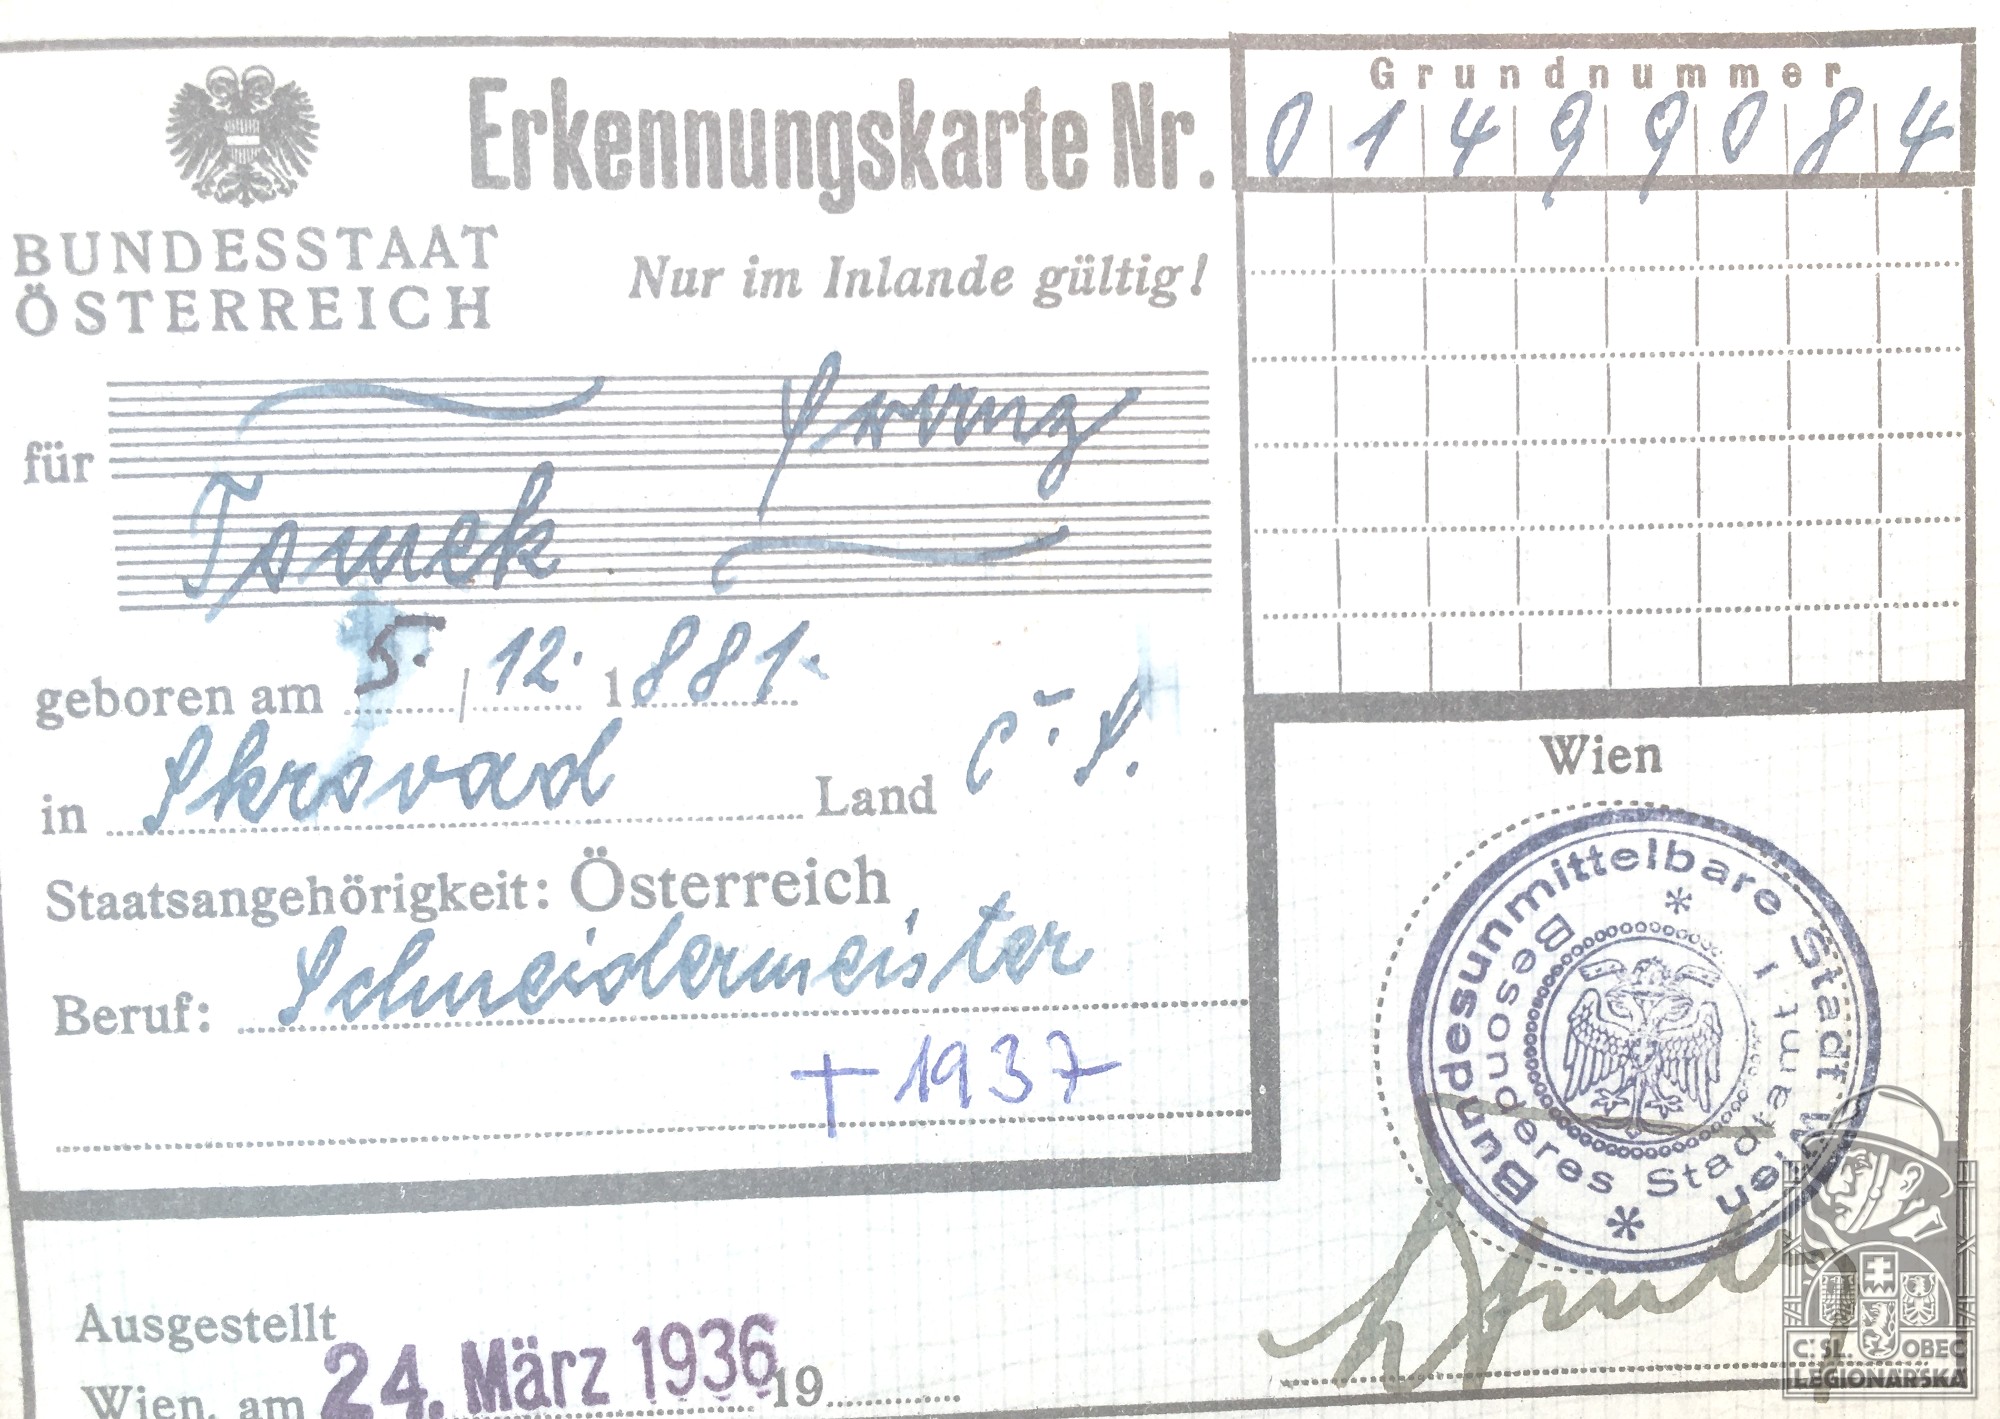 Erkennungskarte Nr.
Grundnummer
01499084
BUNDESSTAAT
ÖSTERREICH
Nur im Inlande gültig!
für
Franz
Tomek
geboren am 5. / 12. 1881.
in Skrovad Land Č. S.
Staatsangehörigkeit: Österreich
Beruf: Schneidermeister
† 1937
Wien
Bundesunmittelbare Stadt Wien
Besonderes Stadtamt I
Ausgestellt
Wien, am 24. März 1936 19
Č. SL. OBEC
LEGIONÁŘSKÁ